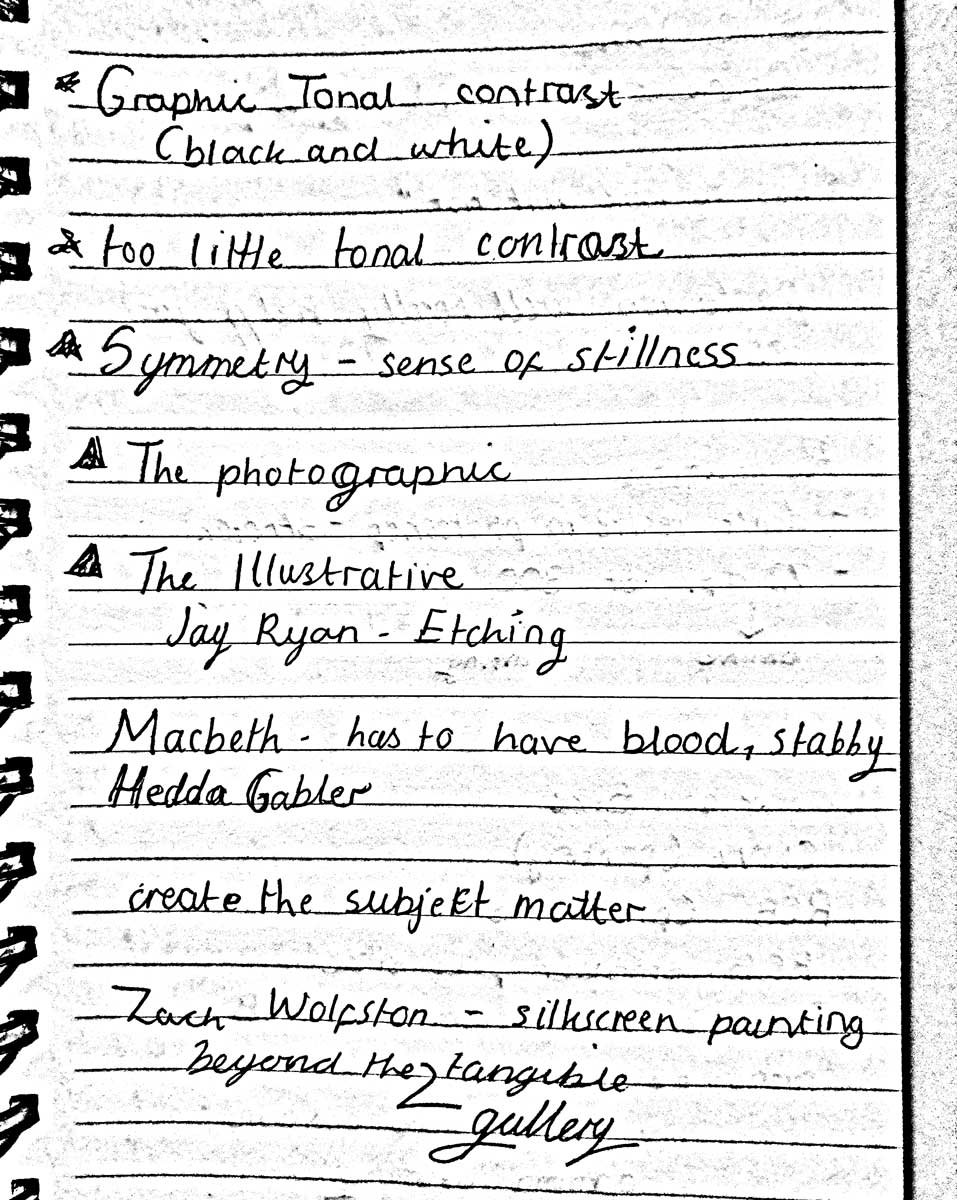 * Graphic Tonal contrast
(black and white)
* too little tonal contrast
* Symmetry - sense of stillness
The photographic
The Illustrative
Jay Ryan - Etching
Macbeth - has to have blood, stabby
Hedda Gabler
create the subjekt matter
Zach Wolfston - silkscreen painting
beyond the tangible
gallery